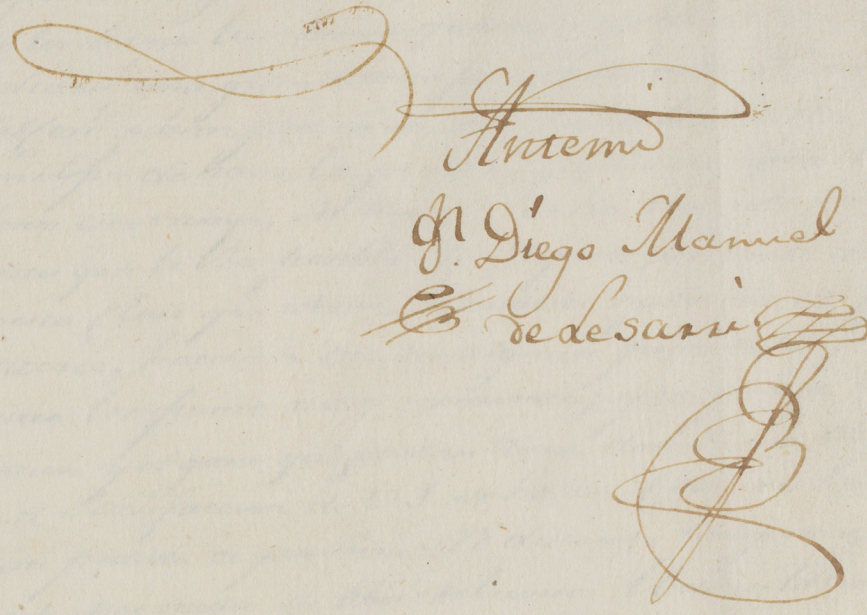 Antemi
Dn Diego Manuel
de Lesarri